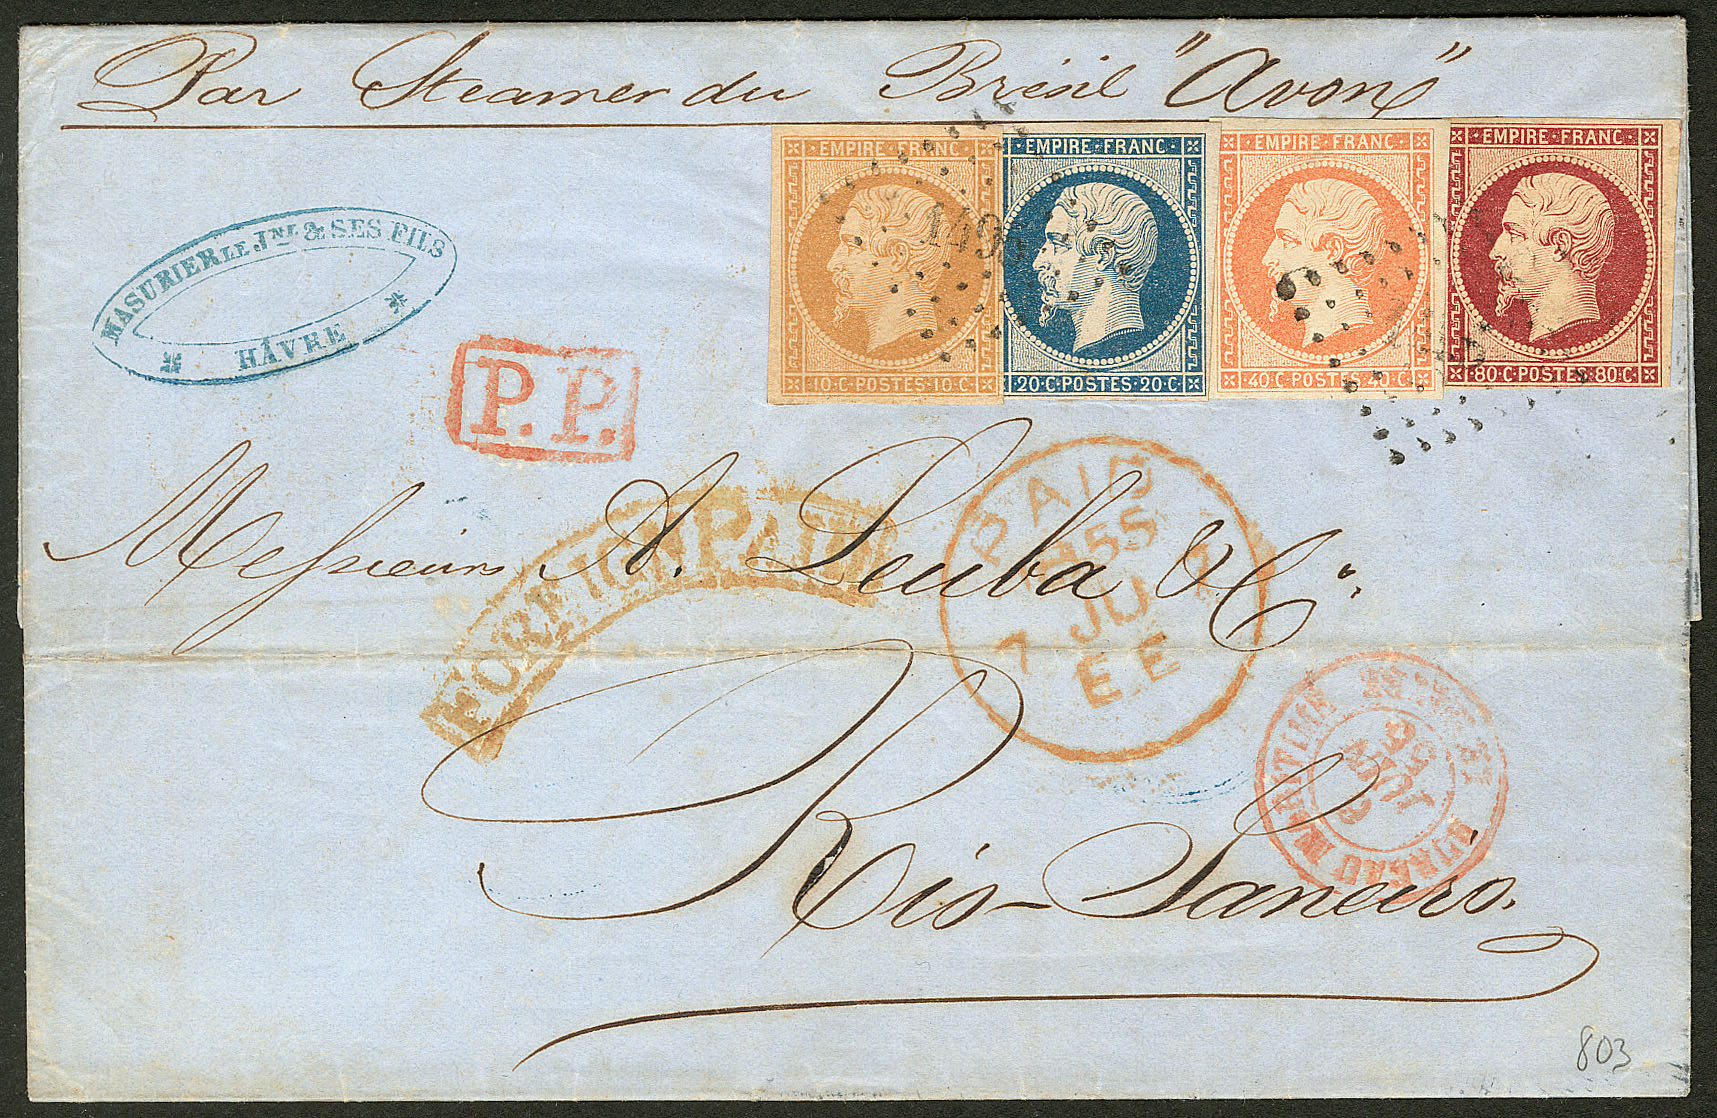 Par Steamer du Brésil "Avon"
EMPIRE · FRANC
10 · C · POSTES · 10 · C
EMPIRE · FRANC
20 · C · POSTES · 20 · C
EMPIRE · FRANC
40 · C · POSTES · 40 · C
EMPIRE · FRANC
80 · C · POSTES · 80 · C
MASURIER LE JNE & SES FILS
HÂVRE
P.P.
FOREIGN PAID
PAID
7 JU 7
EE
Messieurs A. Leuba & Co.
BUREAU MARITIME
Rio-Janeiro.
803